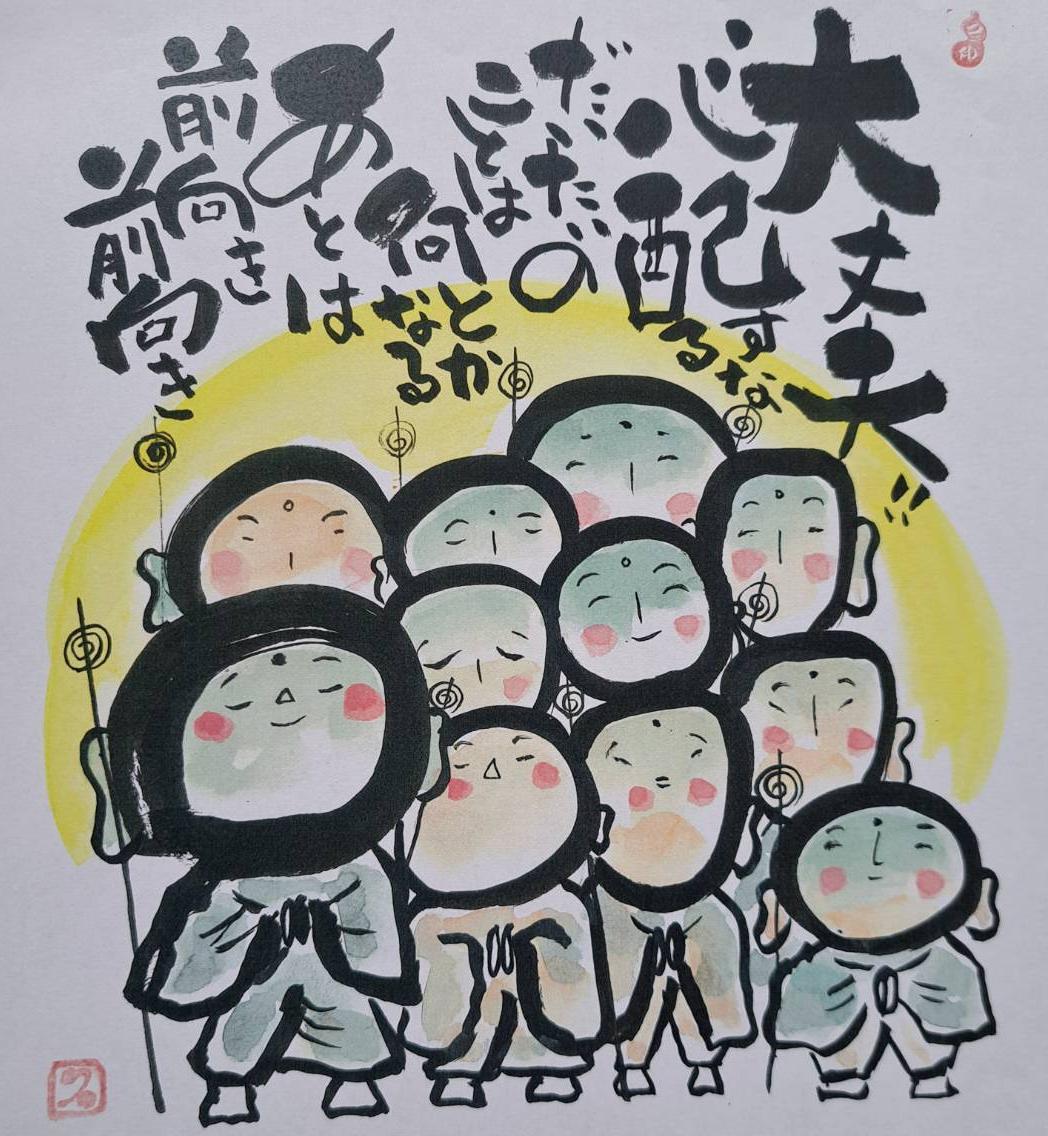 大丈夫!!
心配するな
だいたいの
ことは
何とかなる
あとは
前向き
前向き